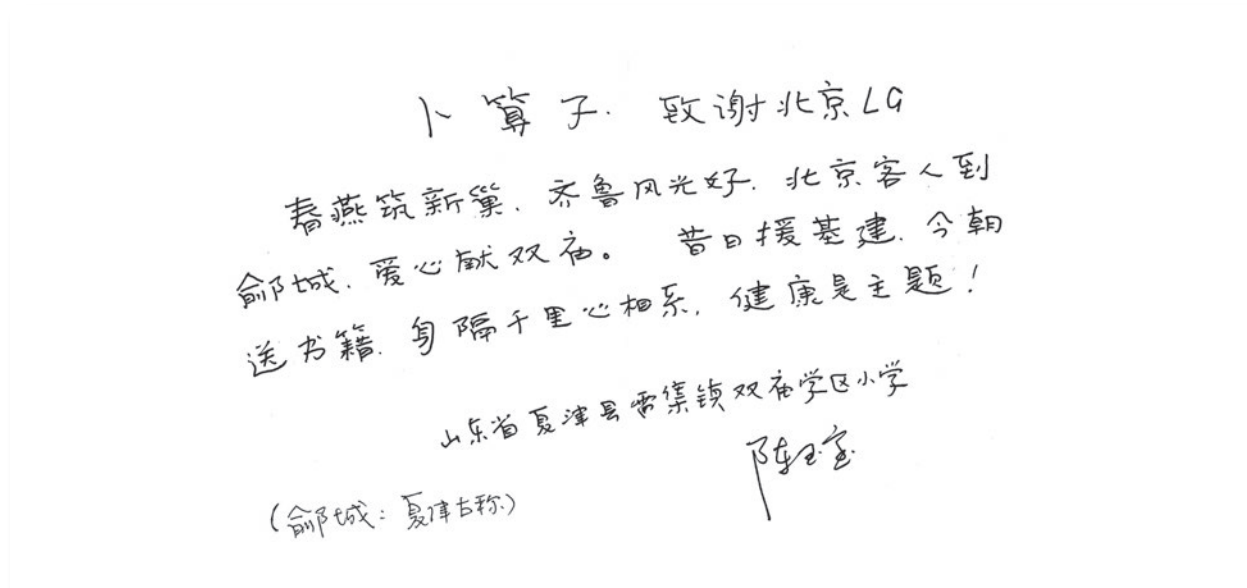 卜算子.致谢北京LG
春燕筑新巢.齐鲁风光好.北京客人到
鄃城.爱心献双庙。昔日援基建.今朝
送书籍.身隔千里心相系,健康是主题!
山东省夏津县雷集镇双庙学区小学
陈玉宝
(鄃城:夏津古称)